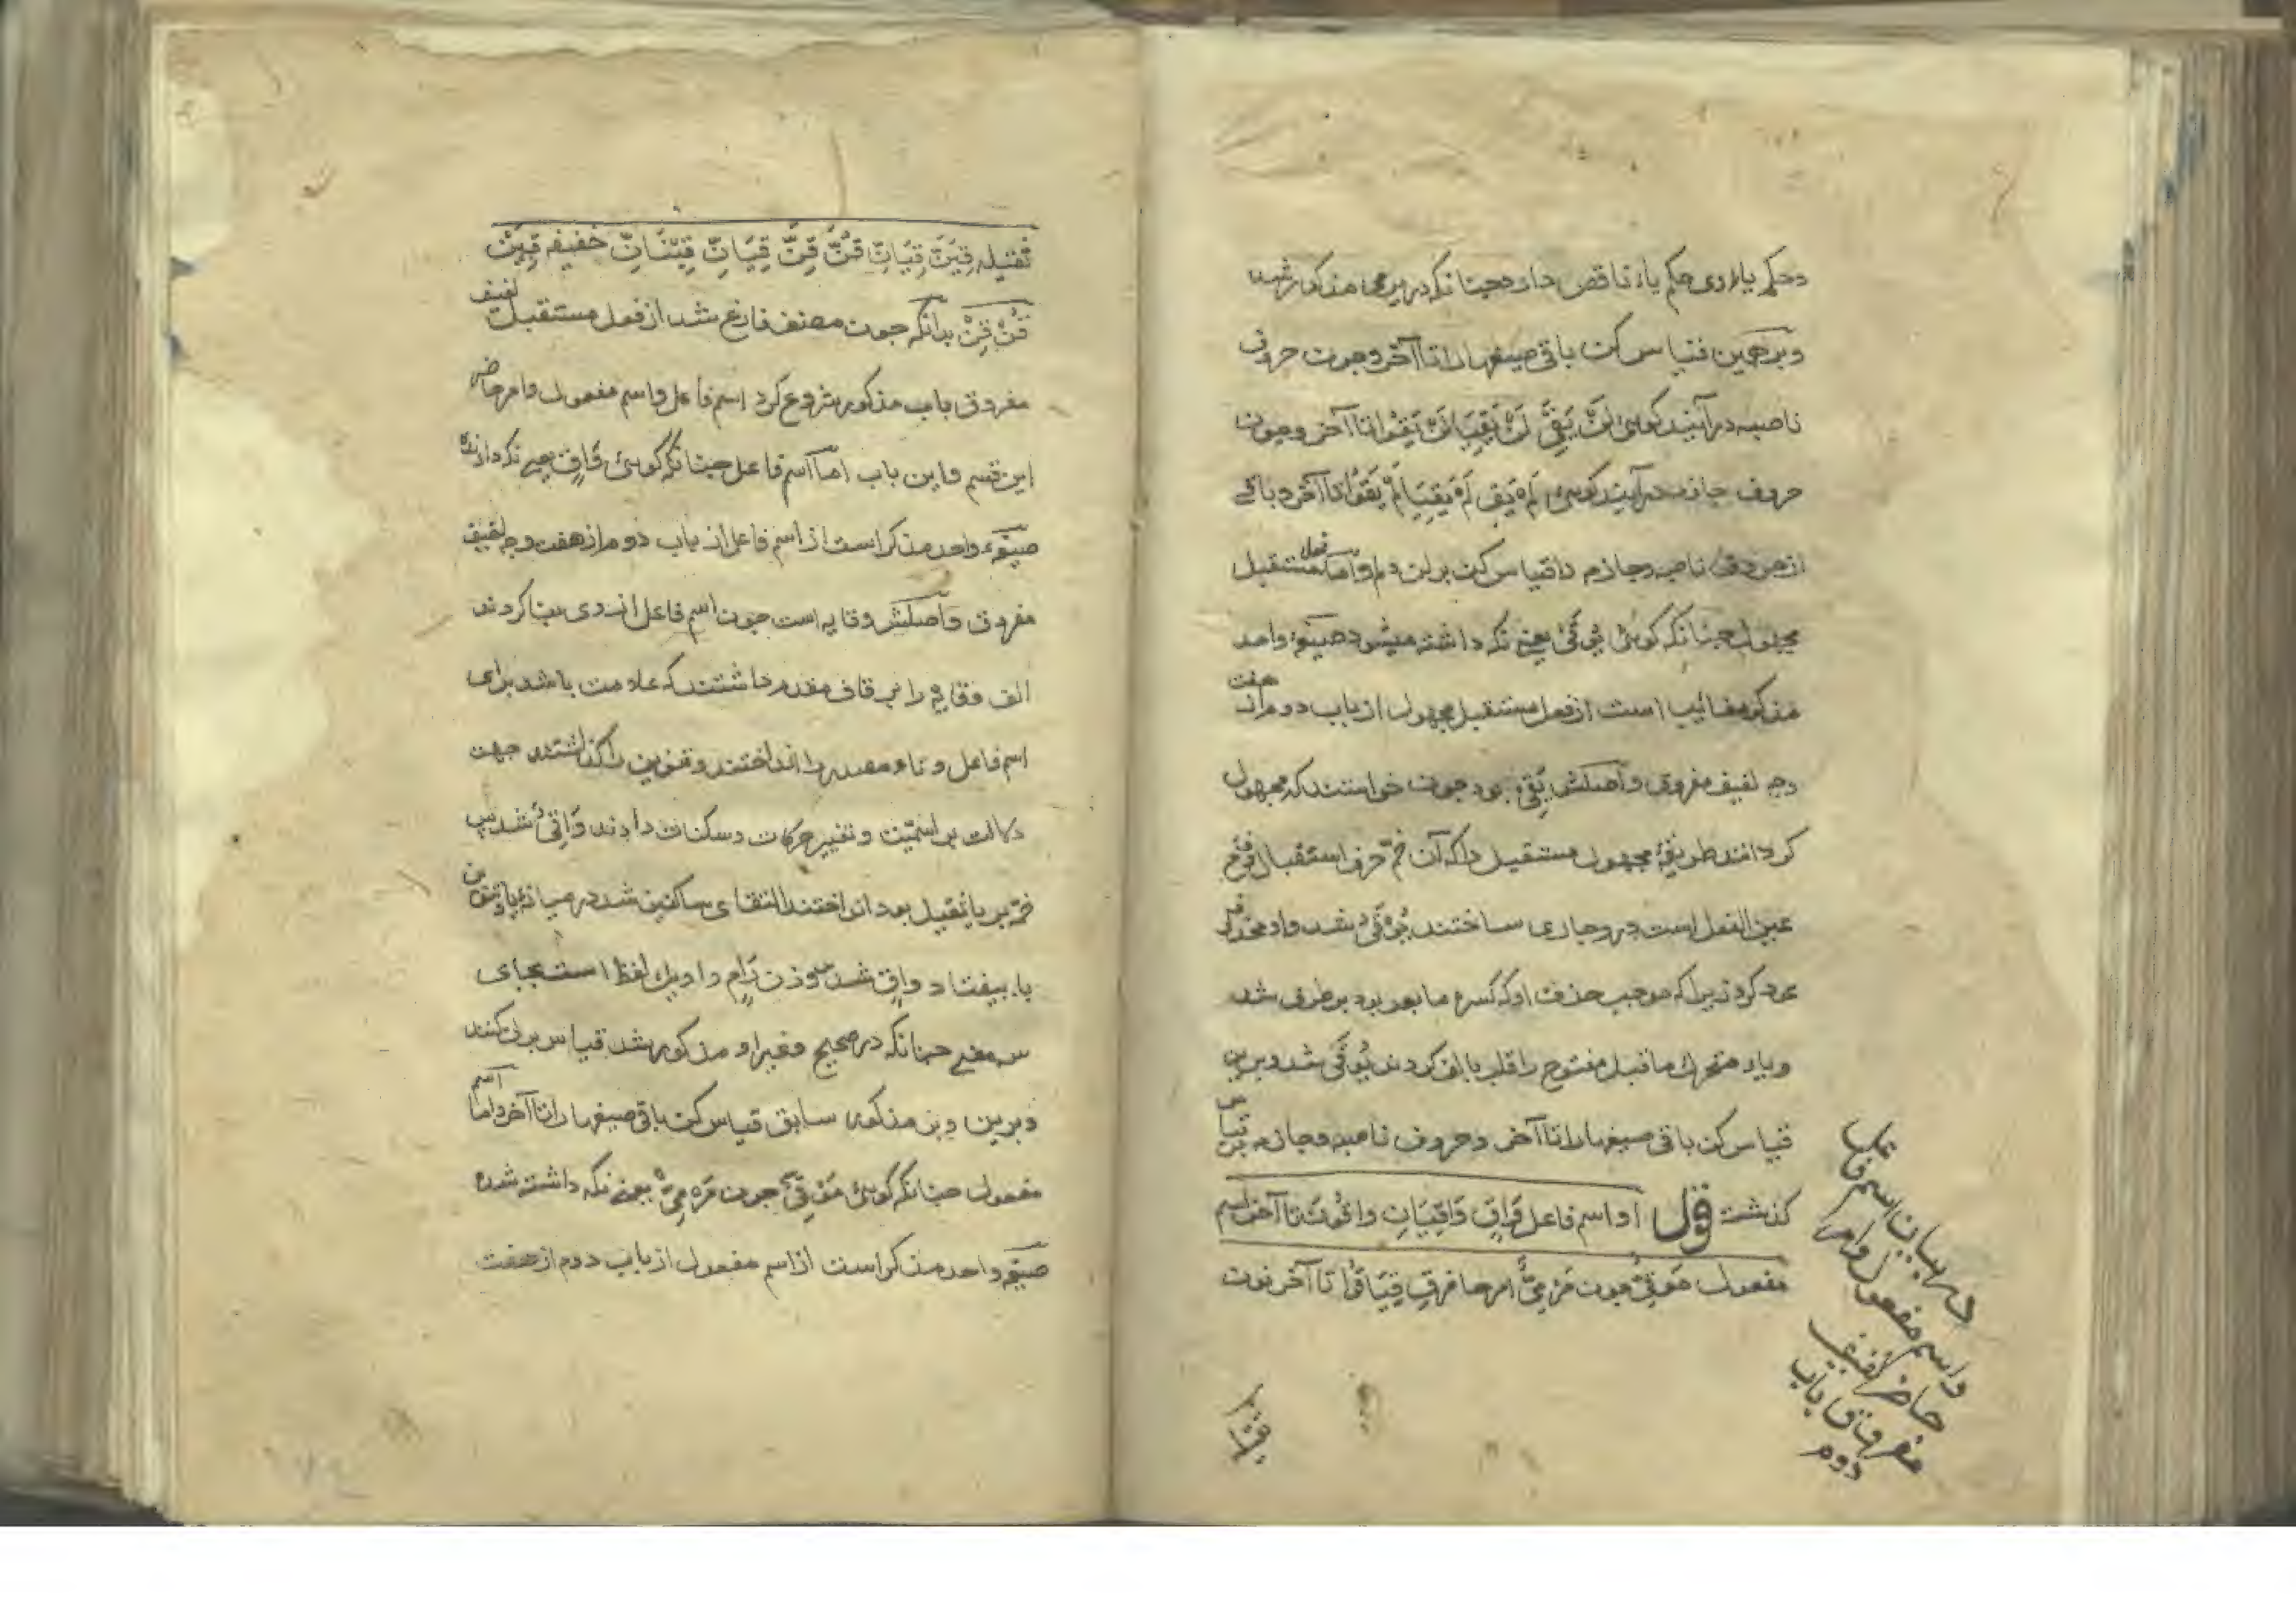 وحکم یاء وی حکم یاء ناقص دارد چنانکه در یرمی مذکور شد
وبرهمین قیاس کن باقی صیغهارا تا آخر وچون حروف
ناصبه درآیند کوئی لَنْ یَقِیَ لَنْ یَقِیَا لَنْ یَقُوْا تا آخر وچون
حروف جازمه درآیند کوئی لَمْ یَقِ لَمْ یَقِیَا لَمْ یَقُوْا تا آخر وباقی
از حروف ناصبه وجازمه را قیاس کن بر لن ولم واما فعل مستقبل
مجهول چنانکه کوئی یُوْقٰی یعنی نکه داشته میشود صیغهٔ واحد
مذکر غائب است از فعل مستقبل مجهول از باب دوم از هفت
وجه لفیف مفروق واصلش یَقِیُ بود چون خواستند که مجهول
کردانند طریقهٔ مجهول مستقبل را که آن ضم حرف استقبال وفتح
عین الفعل است درو جاری ساختند یُوْقَیُ شد واو محذوف
عود کرد زیرا که موجب حذف او که کسره ما بعد بود برطرف شد
ویاء متحرک ماقبل مفتوح را قلب بالف کردند یُوْقٰی شد وبرین
قیاس کن باقی صیغهارا تا آخر وحروف ناصبه وجازمه برقیاس
کذشت قول او اسم فاعل وَاقٍ وَاقِیَانِ وَاقُوْنَ تا آخر اسم
مفعول مَوْقِیٌّ چون مَرْمِیٌّ امر حاضر قِ قِیَا قُوْا تا آخر نون
در بیان اسم فاعل
واسم مفعول وامر
حاضر لفیف
مفروق باب
دوم
ثقیله قِیَنَّ قِیَانِّ قُنَّ قِنَّ قِیَانِّ قِیْنَانِّ خفیفه قِیَنْ
قُنْ قِنْ بدانکه چون مصنف فارغ شد از فعل مستقبل لفیف
مفروق باب مذکور شروع کرد اسم فاعل واسم مفعول وامر حاضر
این قسم واین باب اما اسم فاعل چنانکه کوئی وَاقٍ یعنی نکه دارنده
صیغهٔ واحد مذکر است از اسم فاعل از باب دوم از هفت وجه لفیف
مفروق واصلش وقایه است چون اسم فاعل از وی بنا کردند
الف وقایه را بر قاف مقدم داشتند که علامت باشد برای
اسم فاعل وتاء مصدر را انداختند وتنوین را کذاشتند جهت
دلالت بر اسمیّت وتغییر حرکات وسکنات دادند وَاقِیٌ شد پس
ضمّه بر یا ثقیل بود انداختند التقای ساکنین شد در میانهٔ یا وتنوین
یاء بیفتاد واقٍ شد بروزن رَامٍ واو یک لفظ است بجای
سه معنی چنانکه در صحیح وغیر او مذکور شد قیاس بر آن کنند
وبرین وزن مذکور سابق قیاس کن باقی صیغها را تا آخر واما اسم
مفعول چنانکه کوئی مَوْقِیٌّ چون مَرْمِیٌّ یعنی نکه داشته شده
صیغه واحد مذکر است از اسم مفعول از باب دوم از هفت